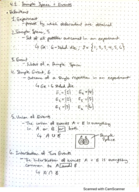 4.2 Sample Space & Events
Definitions
1. Experiment
- process by which observations are obtained
2. Sample Space, S
- Set of all possible outcomes in an experiment
S = {1, 2, 3, 4, 5, 6}
3. Event
- Subset of a Sample Space
4. Simple Event, E
- Outcome of a Single repetition in an experiment
5. Union of Events
- The union of events A & B is everything
in A or B or both
Sample
Space
6. Intersection of Two Events
- The intersection of events A & B is everything
common in A & B
Scanned with CamScanner